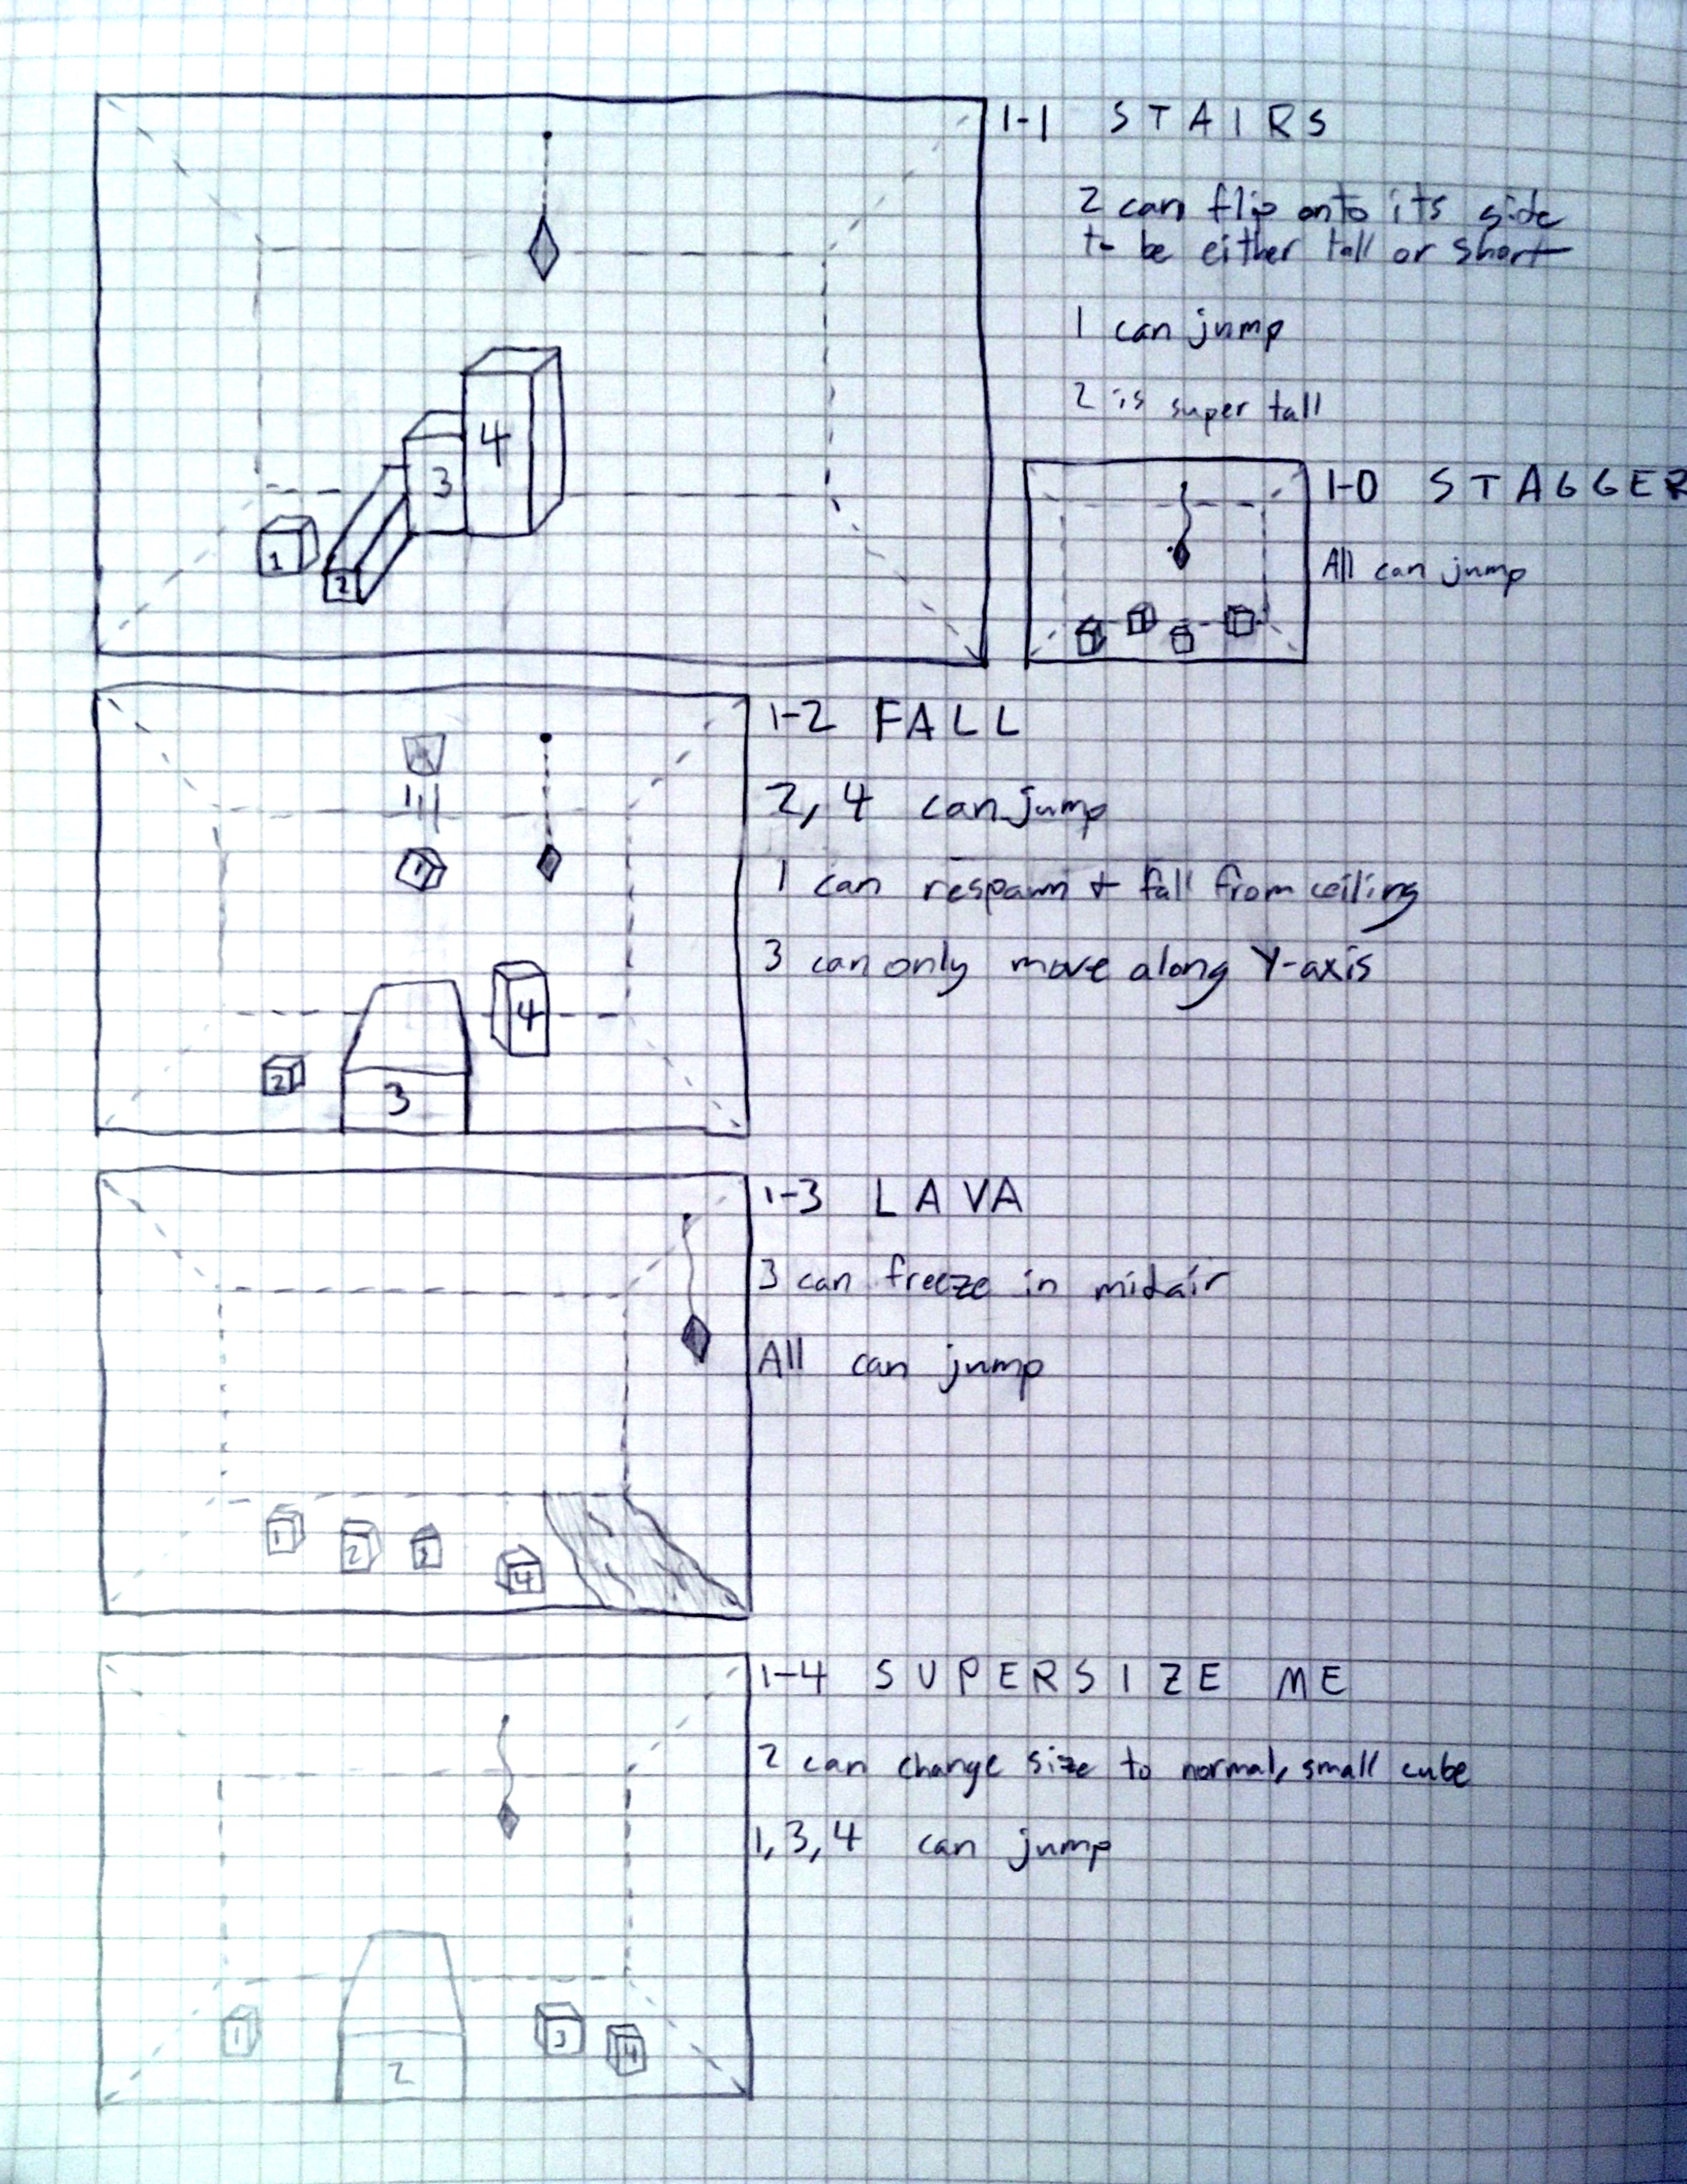 1-1 STAIRS
2 can flip onto its side
to be either tall or short
1 can jump
2 is super tall
1
2
3
4
1-0 STAGGER
All can jump
1-2 FALL
2, 4 can jump
1 can respawn + fall from ceiling
3 can only move along Y-axis
1
2
3
4
1-3 LAVA
3 can freeze in midair
All can jump
1
2
3
4
1-4 SUPERSIZE ME
2 can change size to normal, small cube
1, 3, 4 can jump
1
2
3
4